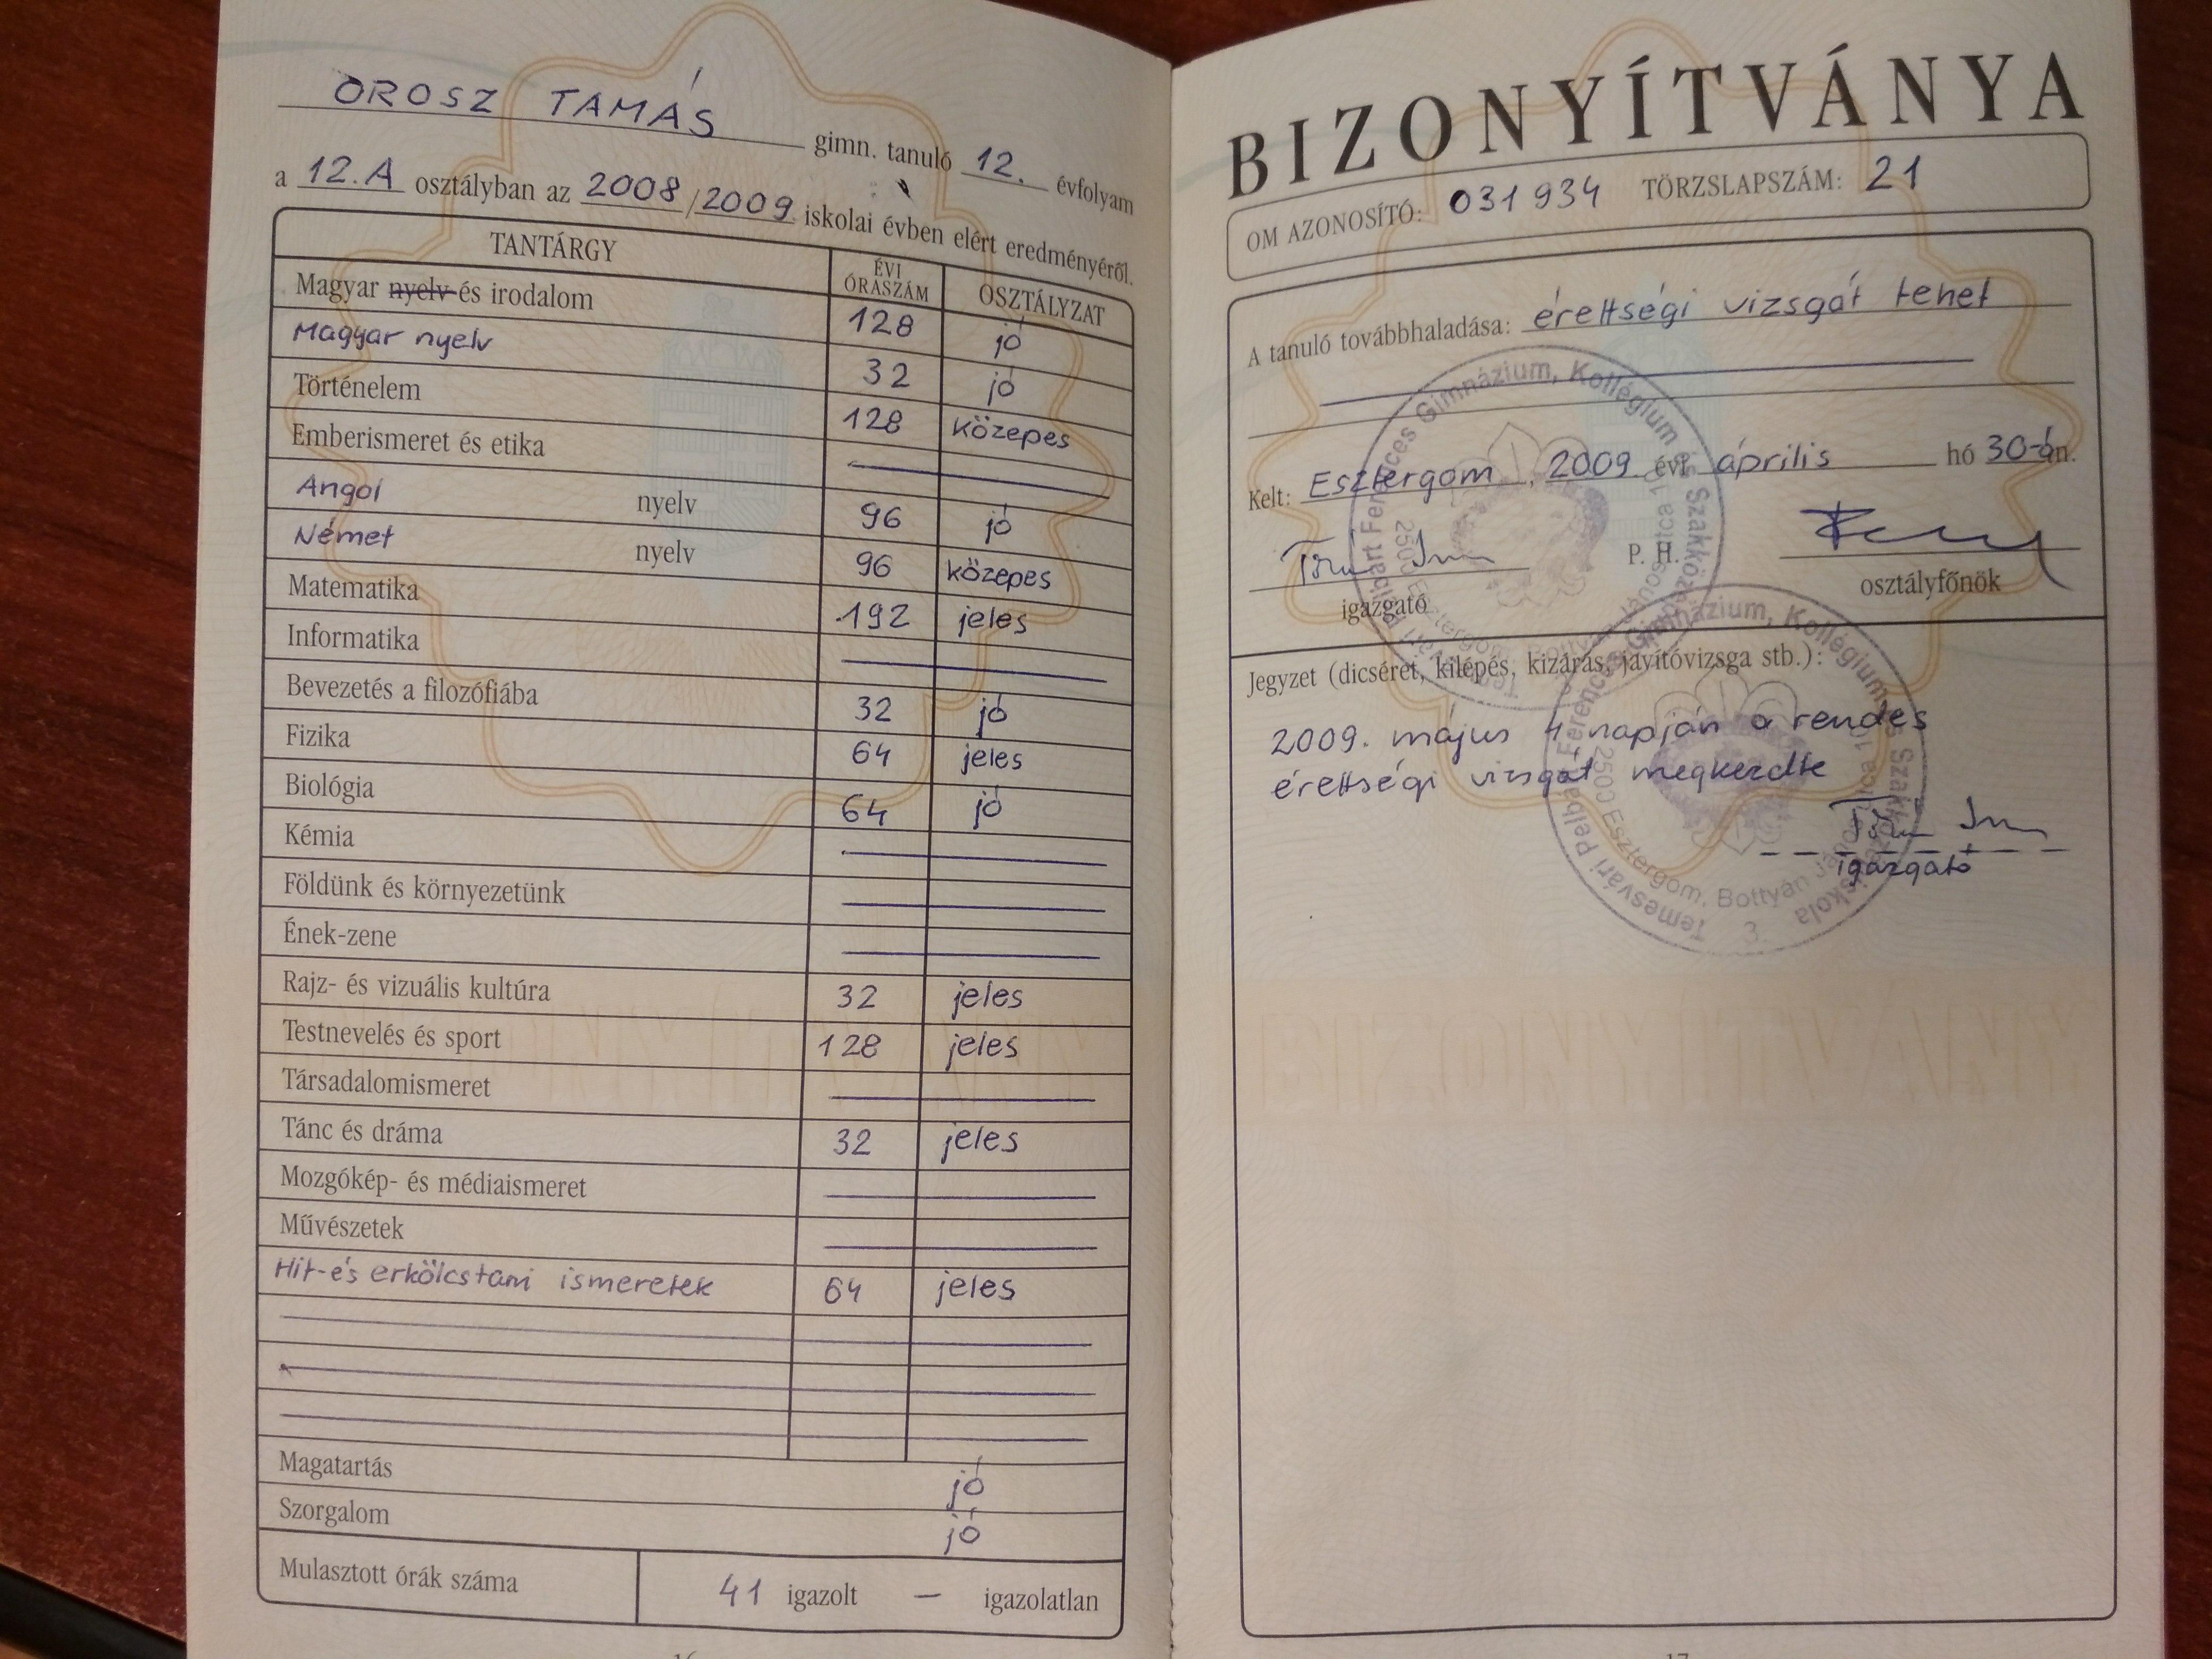 OROSZ TAMÁS gimn. tanuló 12. évfolyam
a 12.A osztályban az 2008/2009 iskolai évben elért eredményéről.
TANTÁRGY ÉVI ÓRASZÁM OSZTÁLYZAT
Magyar nyelv és irodalom 128 jó
Magyar nyelv 32 jó
Történelem 128 közepes
Emberismeret és etika
Angol nyelv 96 jó
Német nyelv 96 közepes
Matematika 192 jeles
Informatika
Bevezetés a filozófiába 32 jó
Fizika 64 jeles
Biológia 64 jó
Kémia
Földünk és környezetünk
Ének-zene
Rajz- és vizuális kultúra 32 jeles
Testnevelés és sport 128 jeles
Társadalomismeret
Tánc és dráma 32 jeles
Mozgókép- és médiaismeret
Művészetek
Hit-és erkölcstani ismeretek 64 jeles
Magatartás jó
Szorgalom jó
Mulasztott órák száma 41 igazolt — igazolatlan
BIZONYÍTVÁNYA
OM AZONOSÍTÓ: 031934 TÖRZSLAPSZÁM: 21
A tanuló továbbhaladása: érettségi vizsgát tehet
Kelt: Esztergom, 2009. évi április hó 30-án.
P. H.
igazgató osztályfőnök
Temesvári Pelbárt Ferences Gimnázium, Kollégium és Szakközépiskola
2500 Esztergom, Bottyán János utca 10.
Jegyzet (dicséret, kilépés, kizárás, javítóvizsga stb.):
2009. május 4 napján a rendes
érettségi vizsgát megkezdte
igazgató
Temesvári Pelbárt Ferences Gimnázium, Kollégium és Szakközépiskola
2500 Esztergom, Bottyán János utca 10.
3.